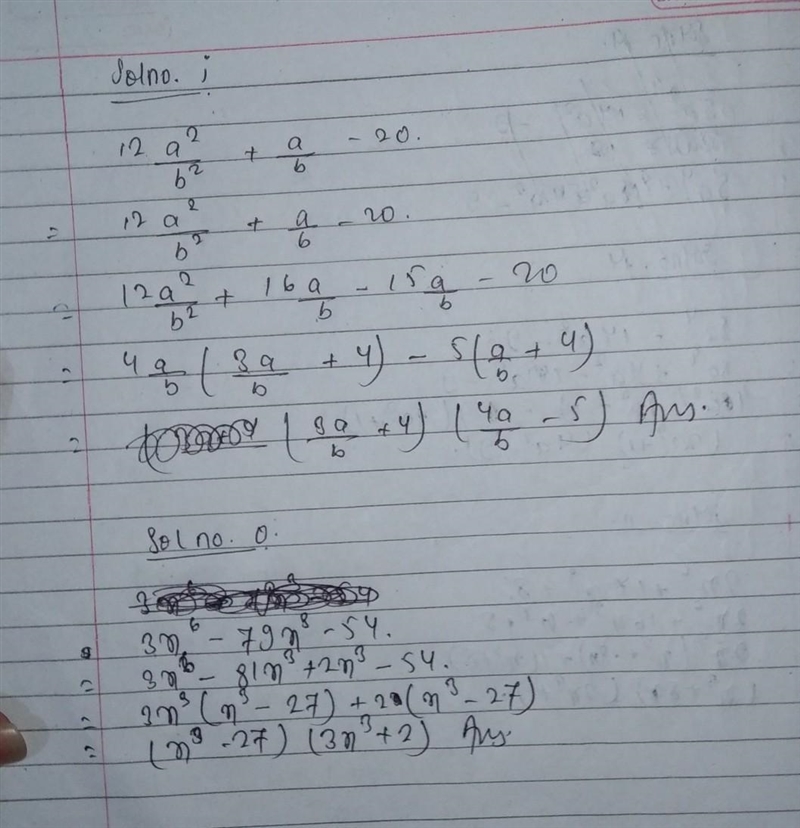 Solno. i
12 a²/b² + a/b - 20.
= 12 a²/b² + a/b - 20.
= 12a²/b² + 16a/b - 15a/b - 20
= 4a/b (3a/b + 4) - 5(a/b + 4)
= (3a/b + 4) (4a/b - 5) Ans.
Sol no. O.
3x⁶ - 79x³ - 54.
= 3x⁶ - 81x³ + 2x³ - 54.
= 3x³(x³ - 27) + 2(x³ - 27)
= (x³ - 27) (3x³ + 2) Ans.